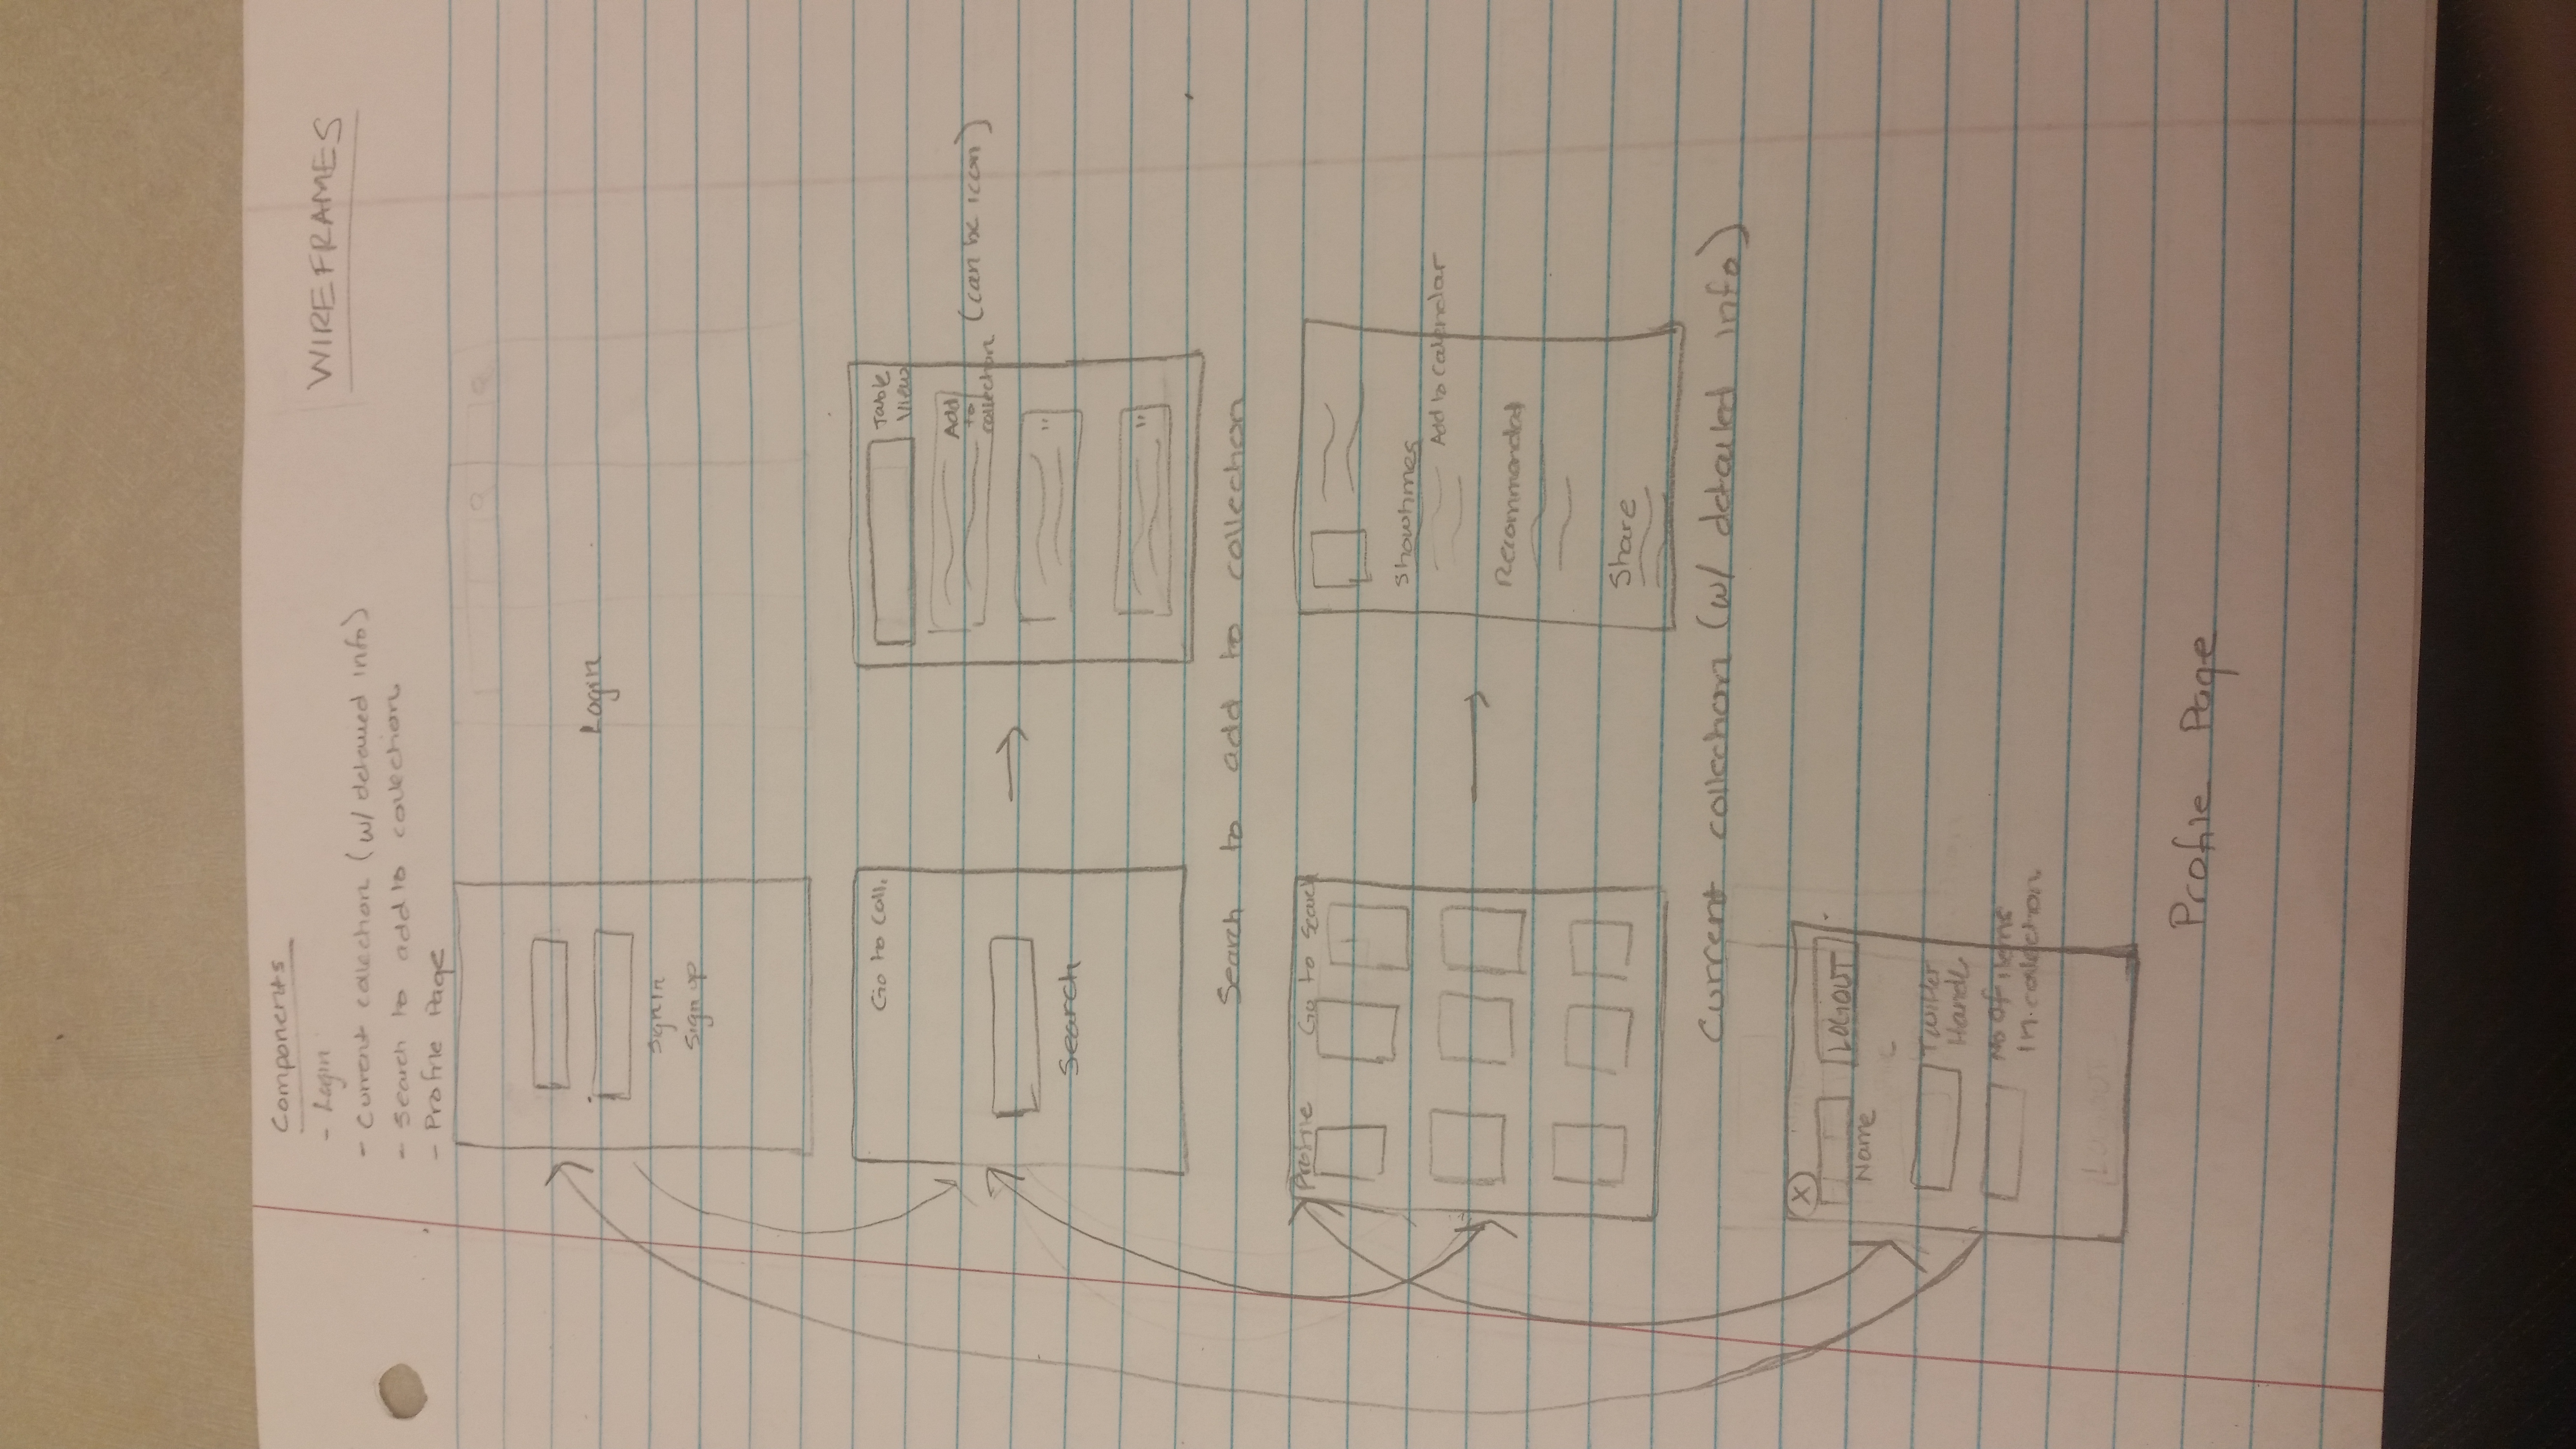 Components
- Login
- Current collection (w/ detailed info)
- Search to add to collection
- Profile Page
WIREFRAMES
Sign In
Sign up
Login
Go to Coll.
Search
Table
View
Add
to
collection
(can be icon)
"
"
Search to add to collection
Profile Go to Search
Showtimes
Add to Calendar
Recommendat
Share
Current collection (w/ detailed info)
X
LOGOUT
Name
Twitter
Handle
No of items
In collection
LOGOUT
Profile Page